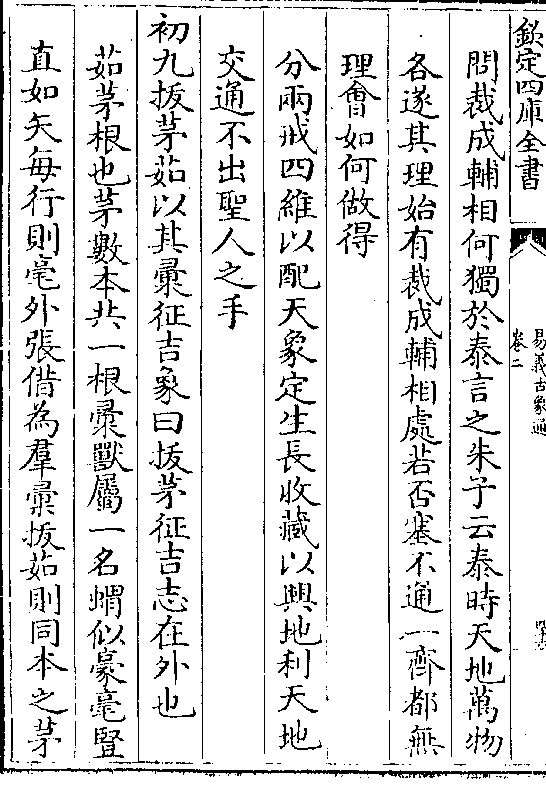 欽定四庫全書
易義古象通
卷二
問裁成輔相何獨於泰言之朱子云泰時天地萬物
各遂其理始有裁成輔相處若否塞不通一齊都無
理會如何做得
分兩戒四維以配天象定生長收藏以興地利天地
交通不出聖人之手
初九拔茅茹以其彚征吉象曰拔茅征吉志在外也
茹茅根也茅數本共一根彚獸屬一名蝟似豪毫豎
直如矢每行則毫外張借為羣彚拔茹則同本之茅